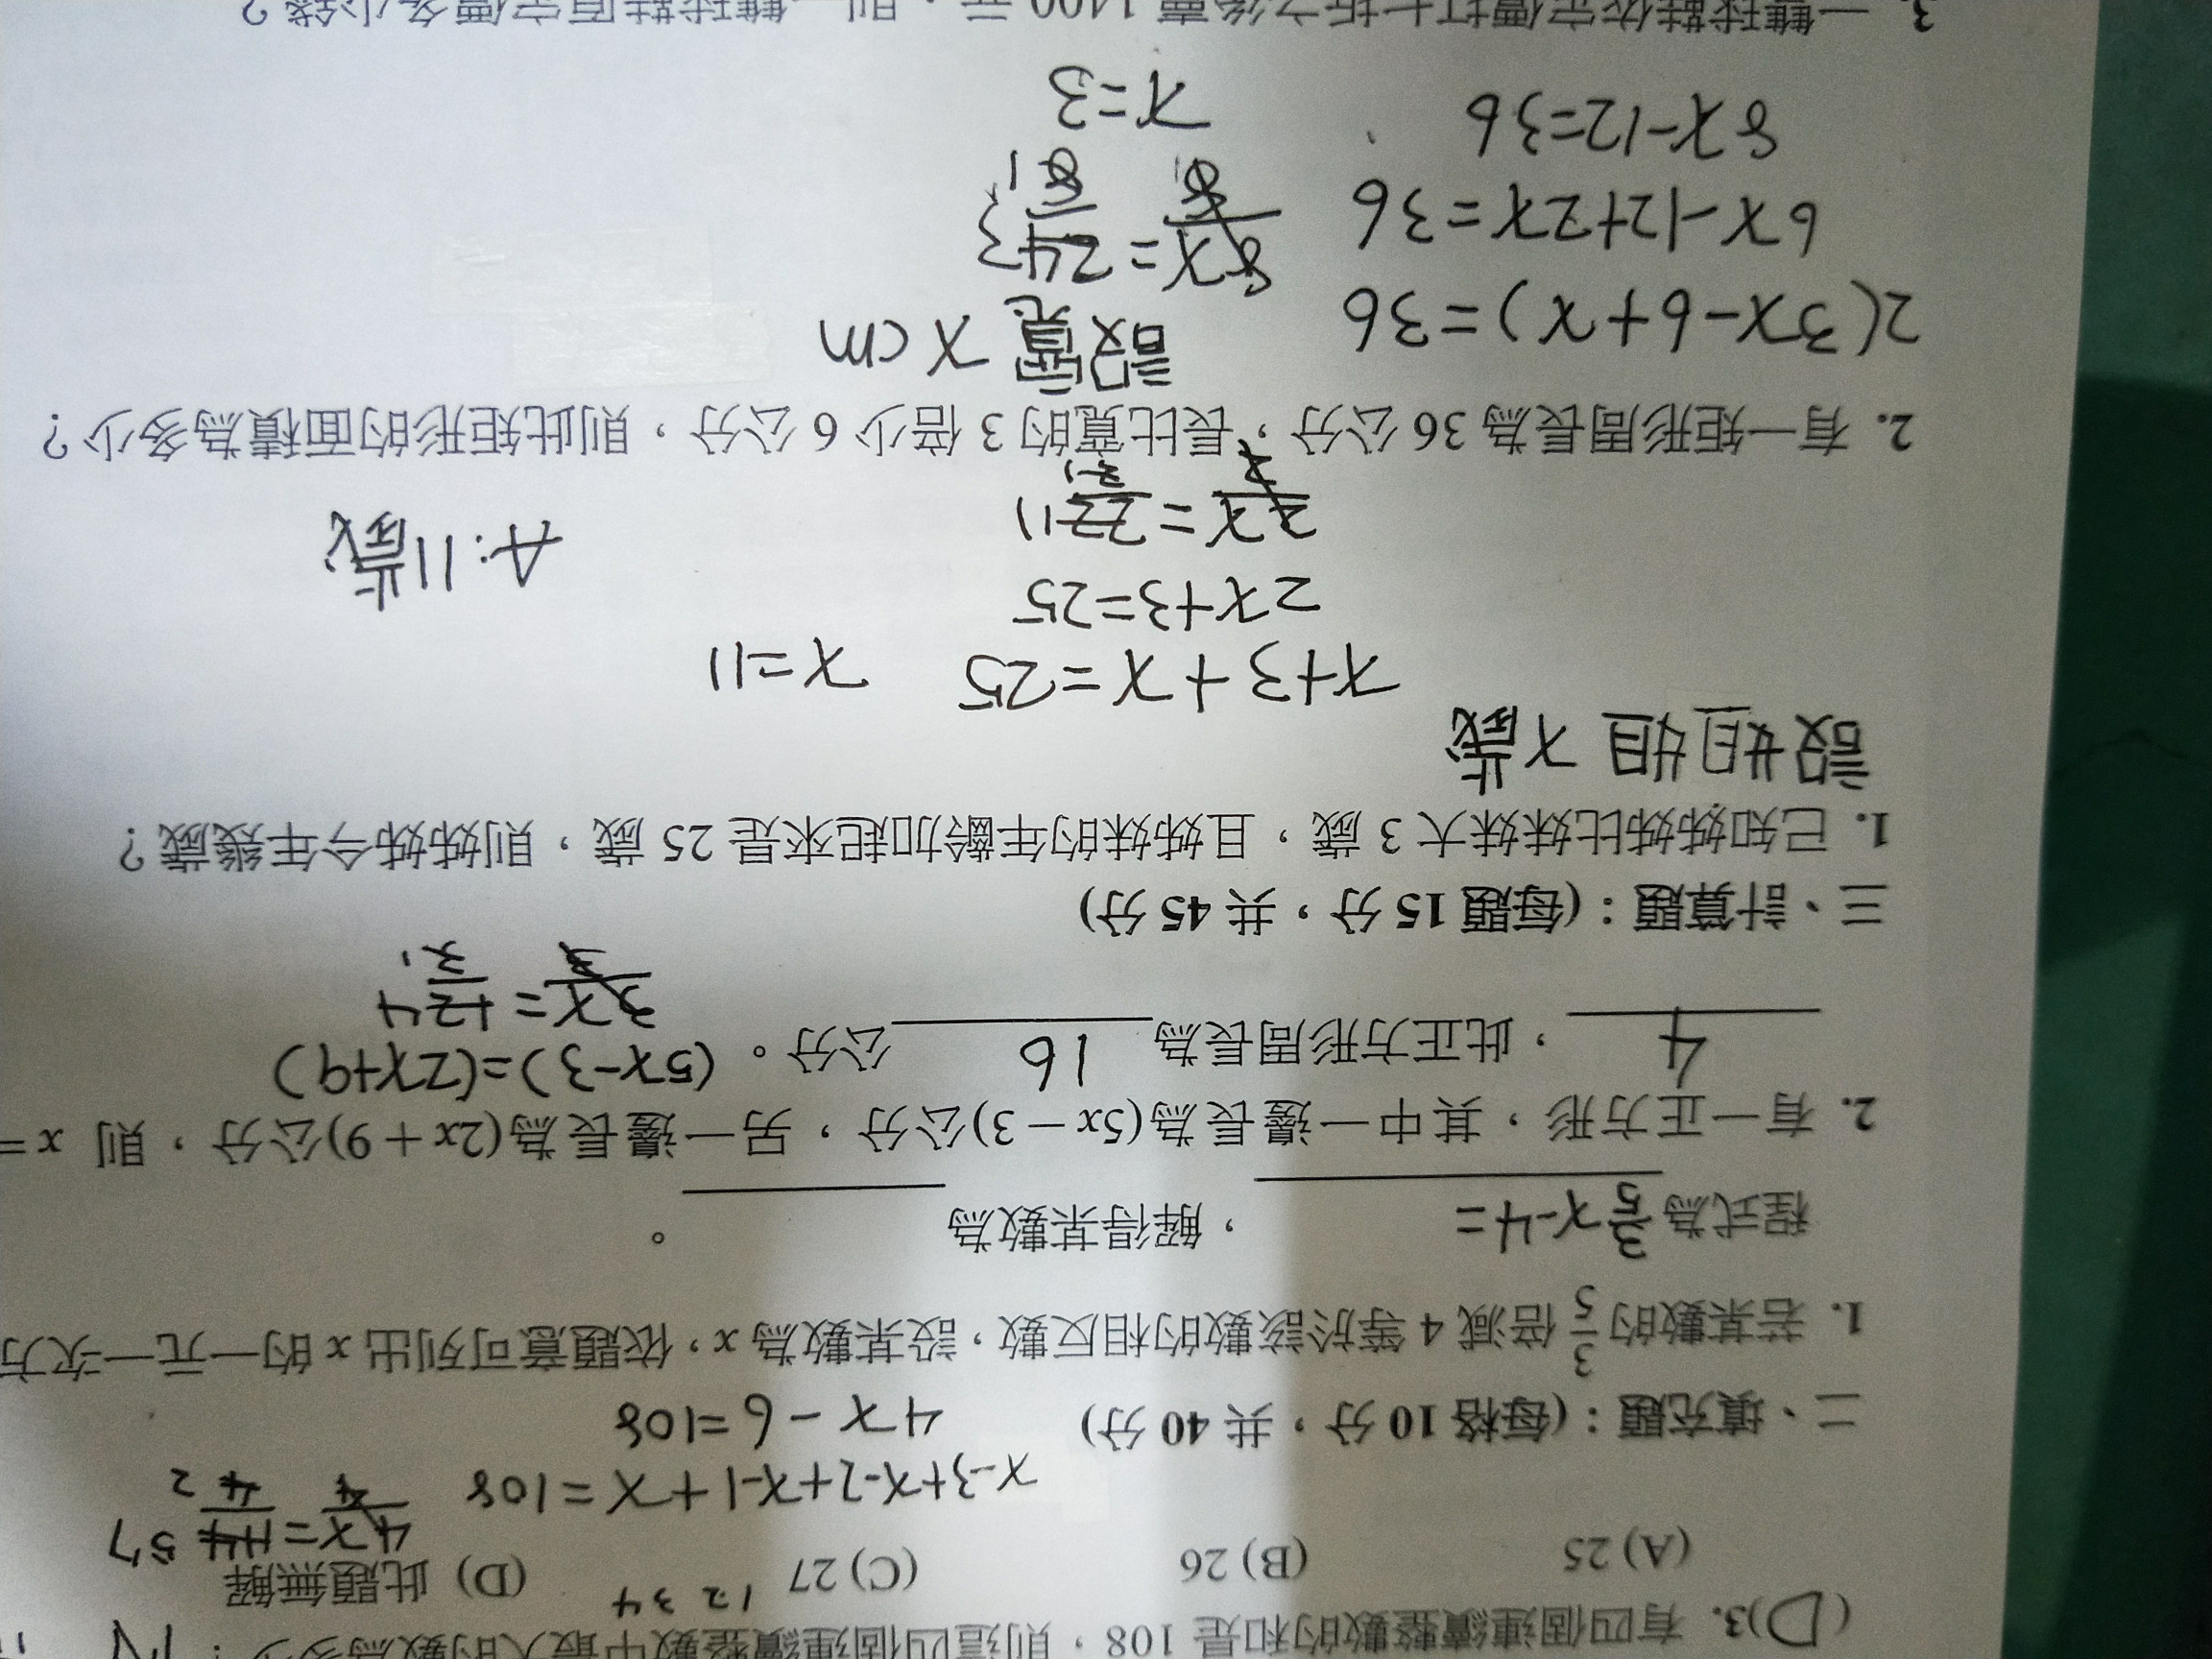 (D)3. 有四個連續整數的和是 108，則這四個連續整數中最大的數為多少？
(A) 25 (B) 26 (C) 27 (D) 此題無解
1 2 3 4
x-3+x-2+x-1+x=108
4x-6=108
二、填充題：(每格 10 分，共 40 分)
1. 若某數的 3/5 倍減 4 等於該數的相反數，設某數為 x，依題意可列出 x 的一元一次方
程式為 3/5 x-4= ，解得某數為 。
2. 有一正方形，其中一邊長為(5x－3)公分，另一邊長為(2x＋9)公分，則 x =
4 ，此正方形周長為 16 公分。 (5x-3)=(2x+9)
3x/3=12/3 4
三、計算題：(每題 15 分，共 45 分)
1. 已知姊姊比妹妹大 3 歲，且姊妹的年齡加起來是 25 歲，則姊姊今年幾歲？
設姐姐 x歲
x+3+x=25 x=11
2x+3=25
2x/2=22/2 11
A:11歲
2. 有一矩形周長為 36 公分，長比寬的 3 倍少 6 公分，則此矩形的面積為多少？
設寬 x cm
2(3x-6+x)=36
6x-12+2x=36
8x-12=36
8x/8=24/8 3
x=3
3. 一雙球鞋依定價打七折之後賣 1400 元，則一雙球鞋原定價多少錢？